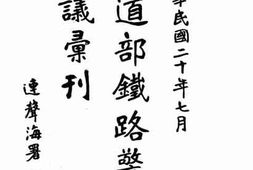 華民國二十年七月
道部鐵路警
議彙刊
連聲海署